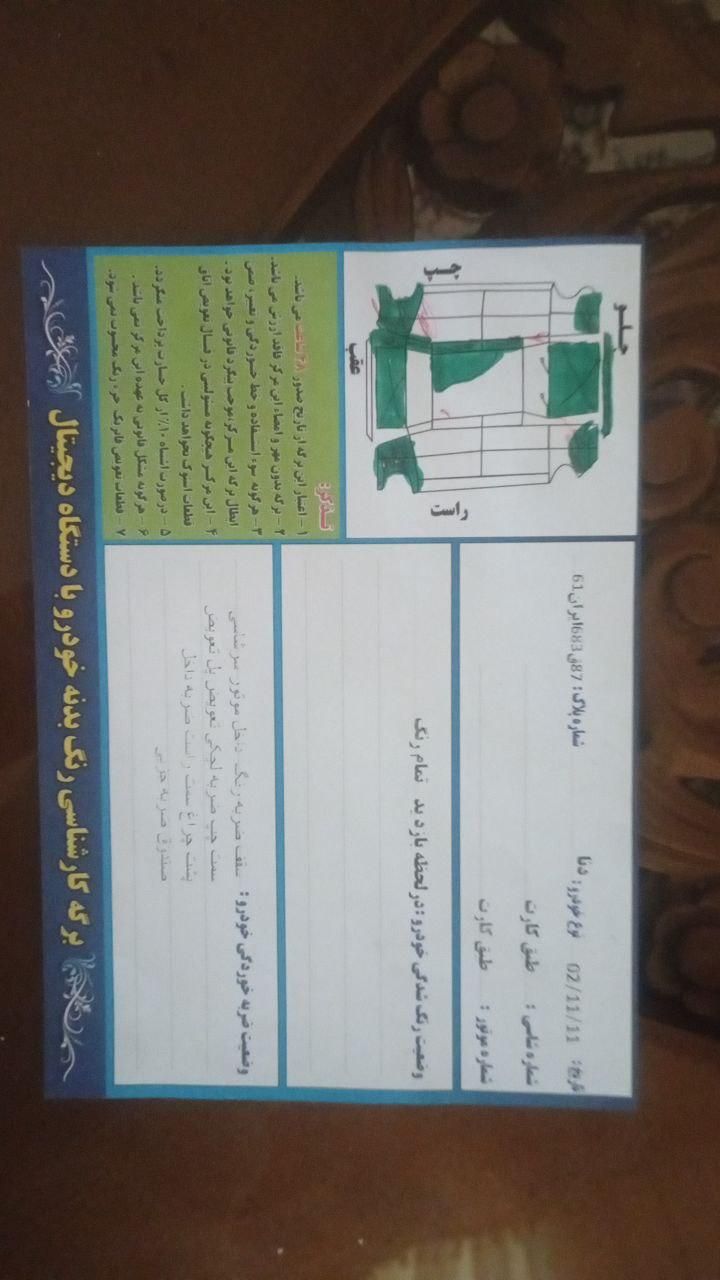 برگه کارشناسی رنگ بدنه خودرو با دستگاه دیجیتال
تاریخ : 02/11/11 نوع خودرو : دنا شماره پلاک : 87ق683ایران61
شماره شاسی : طبق کارت
شماره موتور : طبق کارت
وضعیت رنگ شدگی خودرو : در لحظه بازدید تمام رنگ
وضعیت ضربه خوردگی خودرو : سقف ضربه رنگ داخل موتور سرشاسی
سمت چپ ضربه لچکی تعویض پل تعویض
پشت چراغ سمت راست ضربه داخل
صندوق ضربه جزیی
جلو
چپ
راست
عقب
تذکر:
۱ – اعتبار این برگه از تاریخ صدور ۴۸ ساعت می باشد.
۲ – برگه بدون مهر و امضاء این مرکز فاقد ارزش می باشد.
۳ – هرگونه سوء استفاده و خط خوردگی و تغییر متن
ابطال برگه این مرکز، موجب پیگرد قانونی خواهد بود .
۴ – این مرکز هیچگونه مسئولیتی در قبال تعویض اتاق
قطعات استوک نخواهد داشت .
۵ – درصورت اشتباه ۱۰٪ از کل خسارت پرداخت میگردد.
۶ – هرگونه مشکل قانونی به عهده این مرکز نمی باشد .
۷ – قطعات تعویض فابریک جزء رنگ محسوب نمی شود.